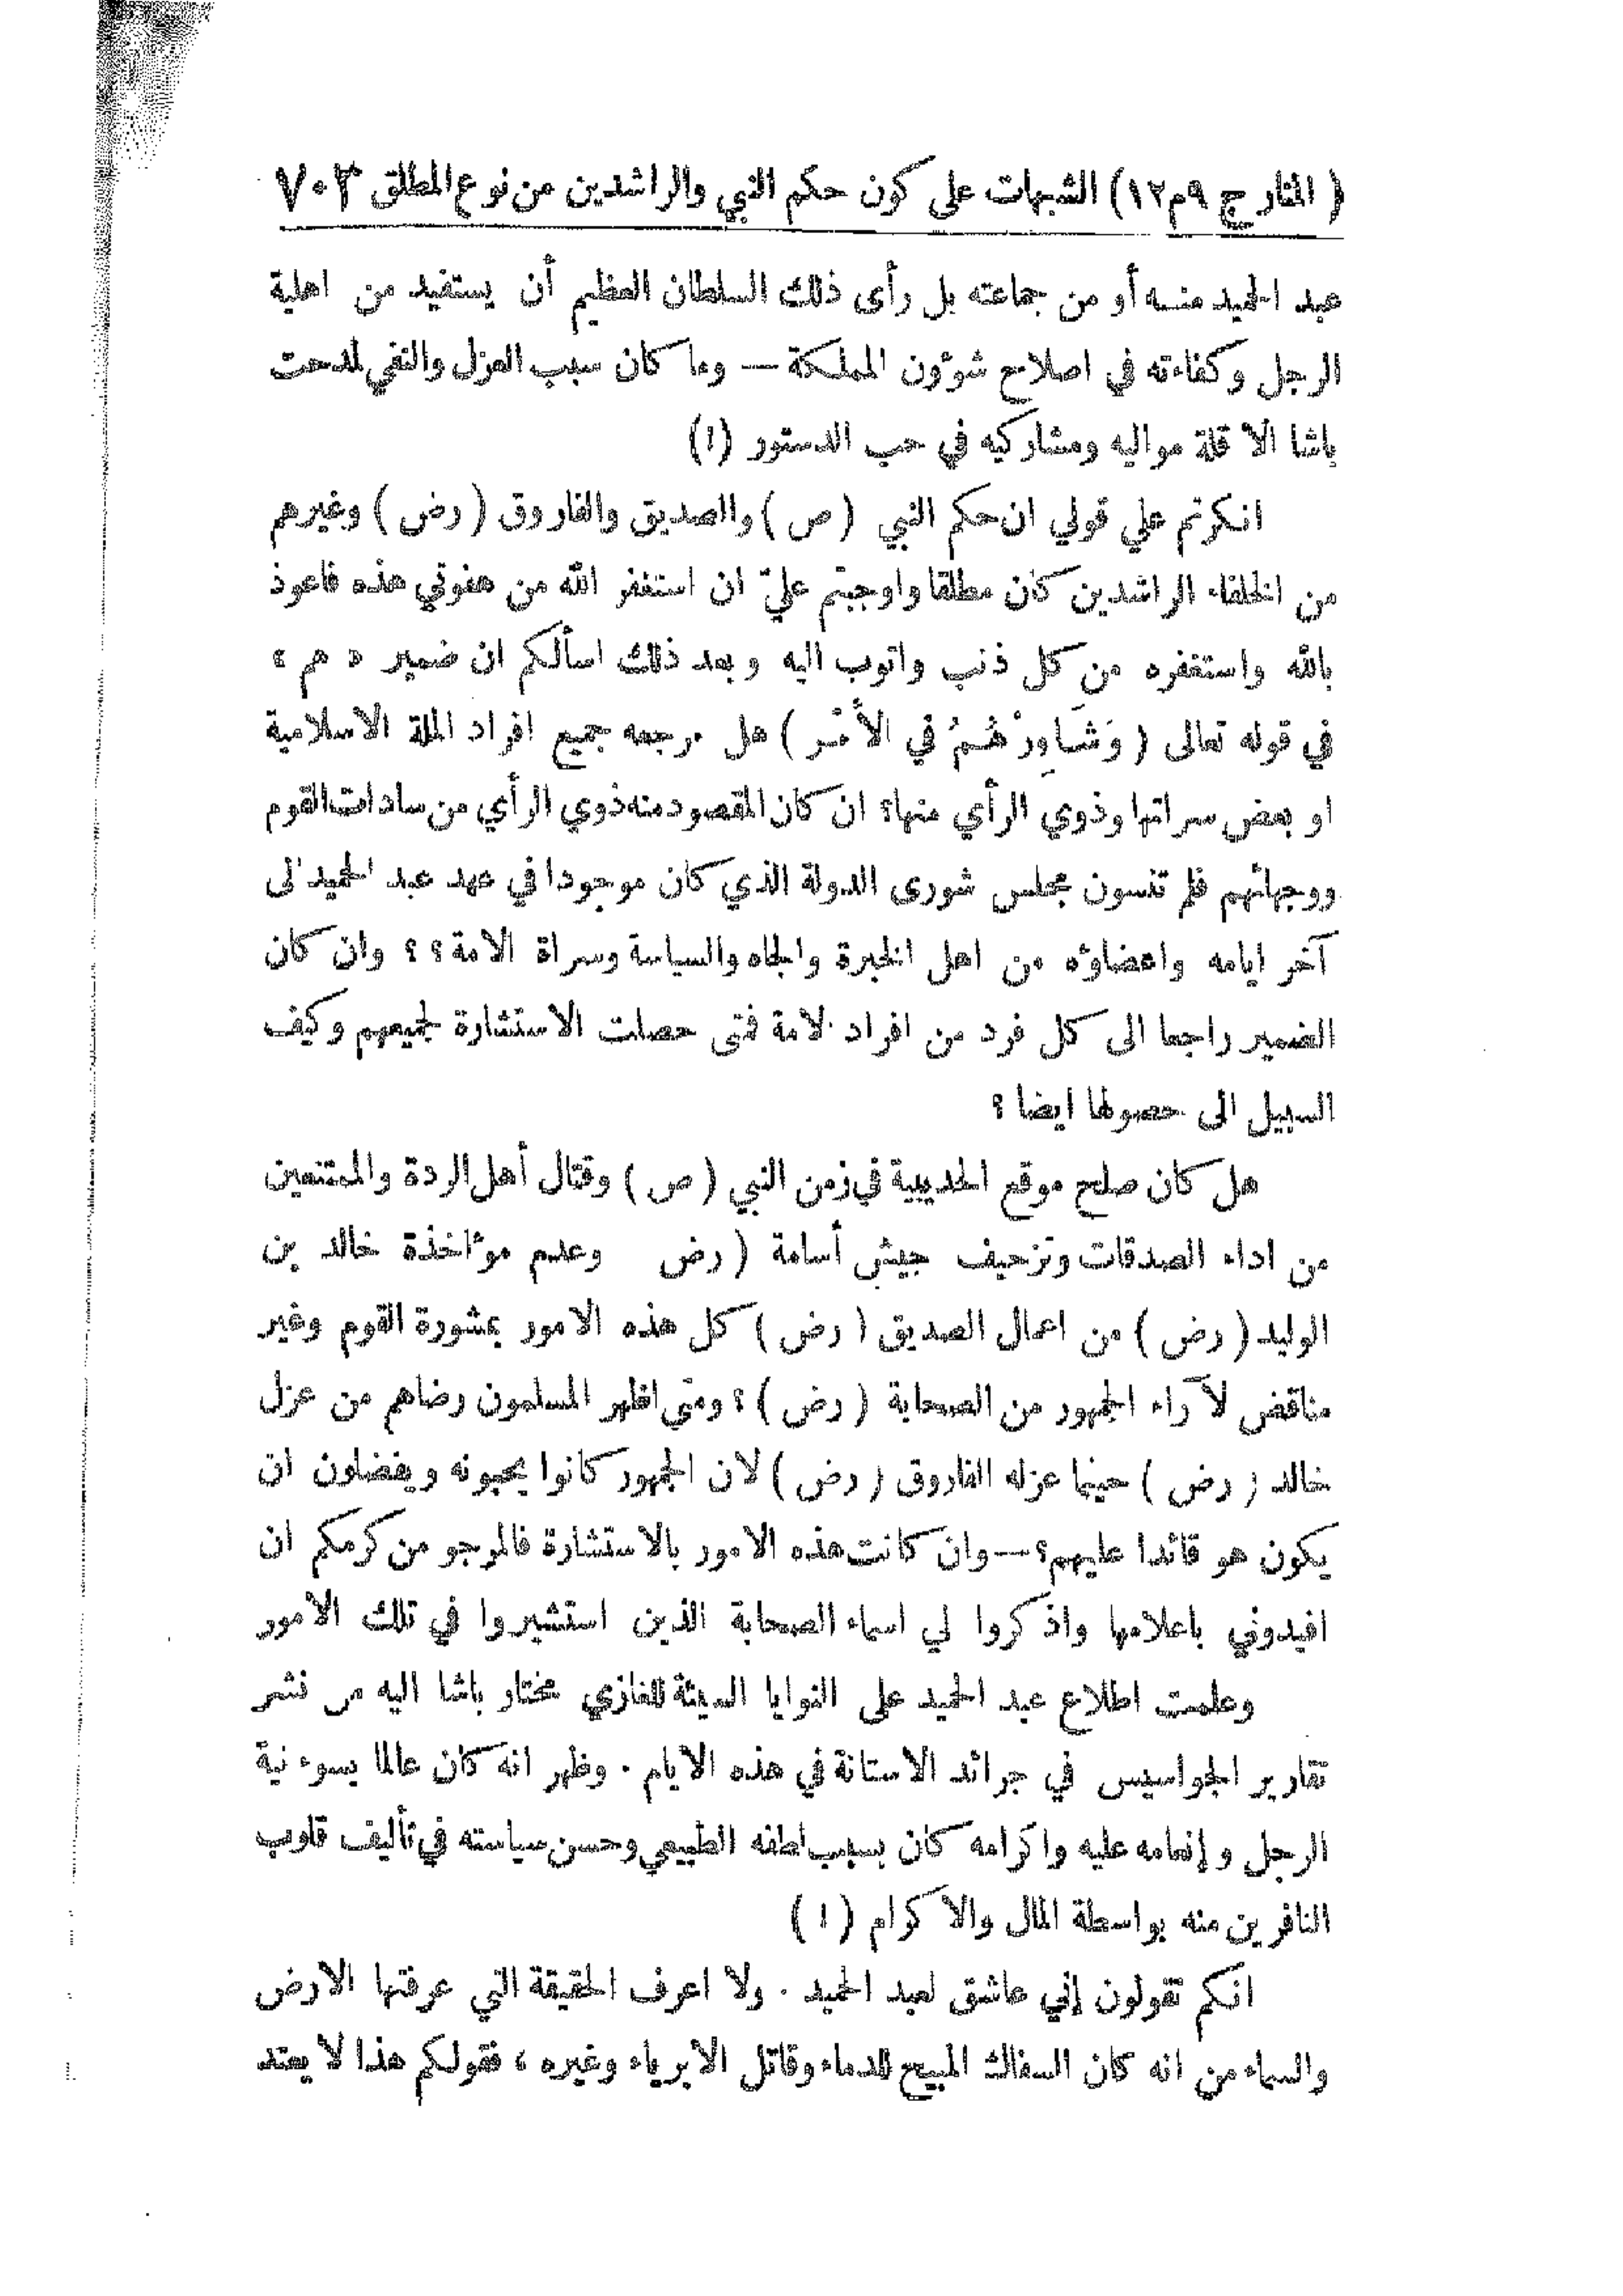 ( المنار ج ٩ م ١٢ ) الشبهات على كون حكم النبي والراشدين من نوع المطلق ٧٠٣
عبد الحميد منه أو من جماعته بل رأى ذلك السلطان العظيم أن يستفيد من اهلية
الرجل وكفاءته في اصلاح شؤون المملكة — وما كان سبب العزل والنفي لمدحت
باشا الا قلة مواليه ومشاركيه في حب الدستور (١)
انكرتم علي قولي ان حكم النبي ( ص ) والصديق والفاروق ( رض ) وغيرهم
من الخلفاء الراشدين كان مطلقا واوجبتم عليّ ان استغفر الله من هفوتي هذه فاعوذ
بالله واستغفره من كل ذنب واتوب اليه وبعد ذلك اسألكم ان ضمير « هم »
في قوله تعالى ( وَشَاوِرْهُمْ في الأَمْر ) هل مرجعه جميع افراد الملة الاسلامية
او بعض سراتها وذوي الرأي منها؟ ان كان المقصود منه ذوي الرأي من سادات القوم
ووجهائهم فلم تنسون مجلس شورى الدولة الذي كان موجودا في عهد عبد الحميد الى
آخر ايامه واعضاؤه من اهل الخبرة والجاه والسياسة وسراة الامة ؟ ؟ وان كان
الضمير راجعا الى كل فرد من افراد الامة فمتى حصلت الاستشارة لجميعهم وكيف
السبيل الى حصولها ايضا ؟
هل كان صلح موقع الحديبية في زمن النبي ( ص ) وقتال أهل الردة والممتنعين
من اداء الصدقات وتزحيف جيش أسامة ( رض وعدم مؤاخذة خالد بن
الوليد ( رض ) من اعمال الصديق ( رض ) كل هذه الامور بمشورة القوم وغير
مناقض لآراء الجمهور من الصحابة ( رض ) ؟ ومتى اظهر المسلمون رضاهم من عزل
خالد ( رض ) حينما عزله الفاروق ( رض ) لان الجمهور كانوا يحبونه ويفضلون ان
يكون هو قائدا عليهم؟ — وان كانت هذه الامور بالاستشارة فالمرجو من كرمكم ان
افيدوني باعلامها واذكروا لي اسماء الصحابة الذين استشيروا في تلك الامور
وعلمت اطلاع عبد الحميد على النوايا السيئة للغازي مختار باشا اليه من نشر
تقارير الجواسيس في جرائد الاستانة في هذه الايام . وظهر انه كان عالما بسوء نية
الرجل وإنعامه عليه واكرامه كان بسبب لطفه الطبيعي وحسن سياسته في تأليف قلوب
النافرين منه بواسطة المال والاكرام ( ١ )
انكم تقولون إني عاشق لعبد الحميد . ولا اعرف الحقيقة التي عرفتها الارض
والسماء من انه كان السفاك المبيح للدماء وقاتل الابرياء وغيره ، فقولكم هذا لا يعتد